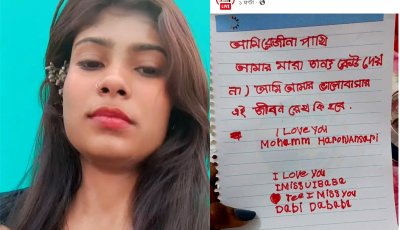 LIVE
১ ঘণ্টা
আমি রেজীনা পাখি
আমার মারা তানু কেউ দেয়
না) আমি আমার ভালোবাসার
এই জীবন রেখে কি হবে.
I Love you
Mohamm HaronAnsari
I Love you
IMissUIBaBa
I miss you
Dabi DaBaBa